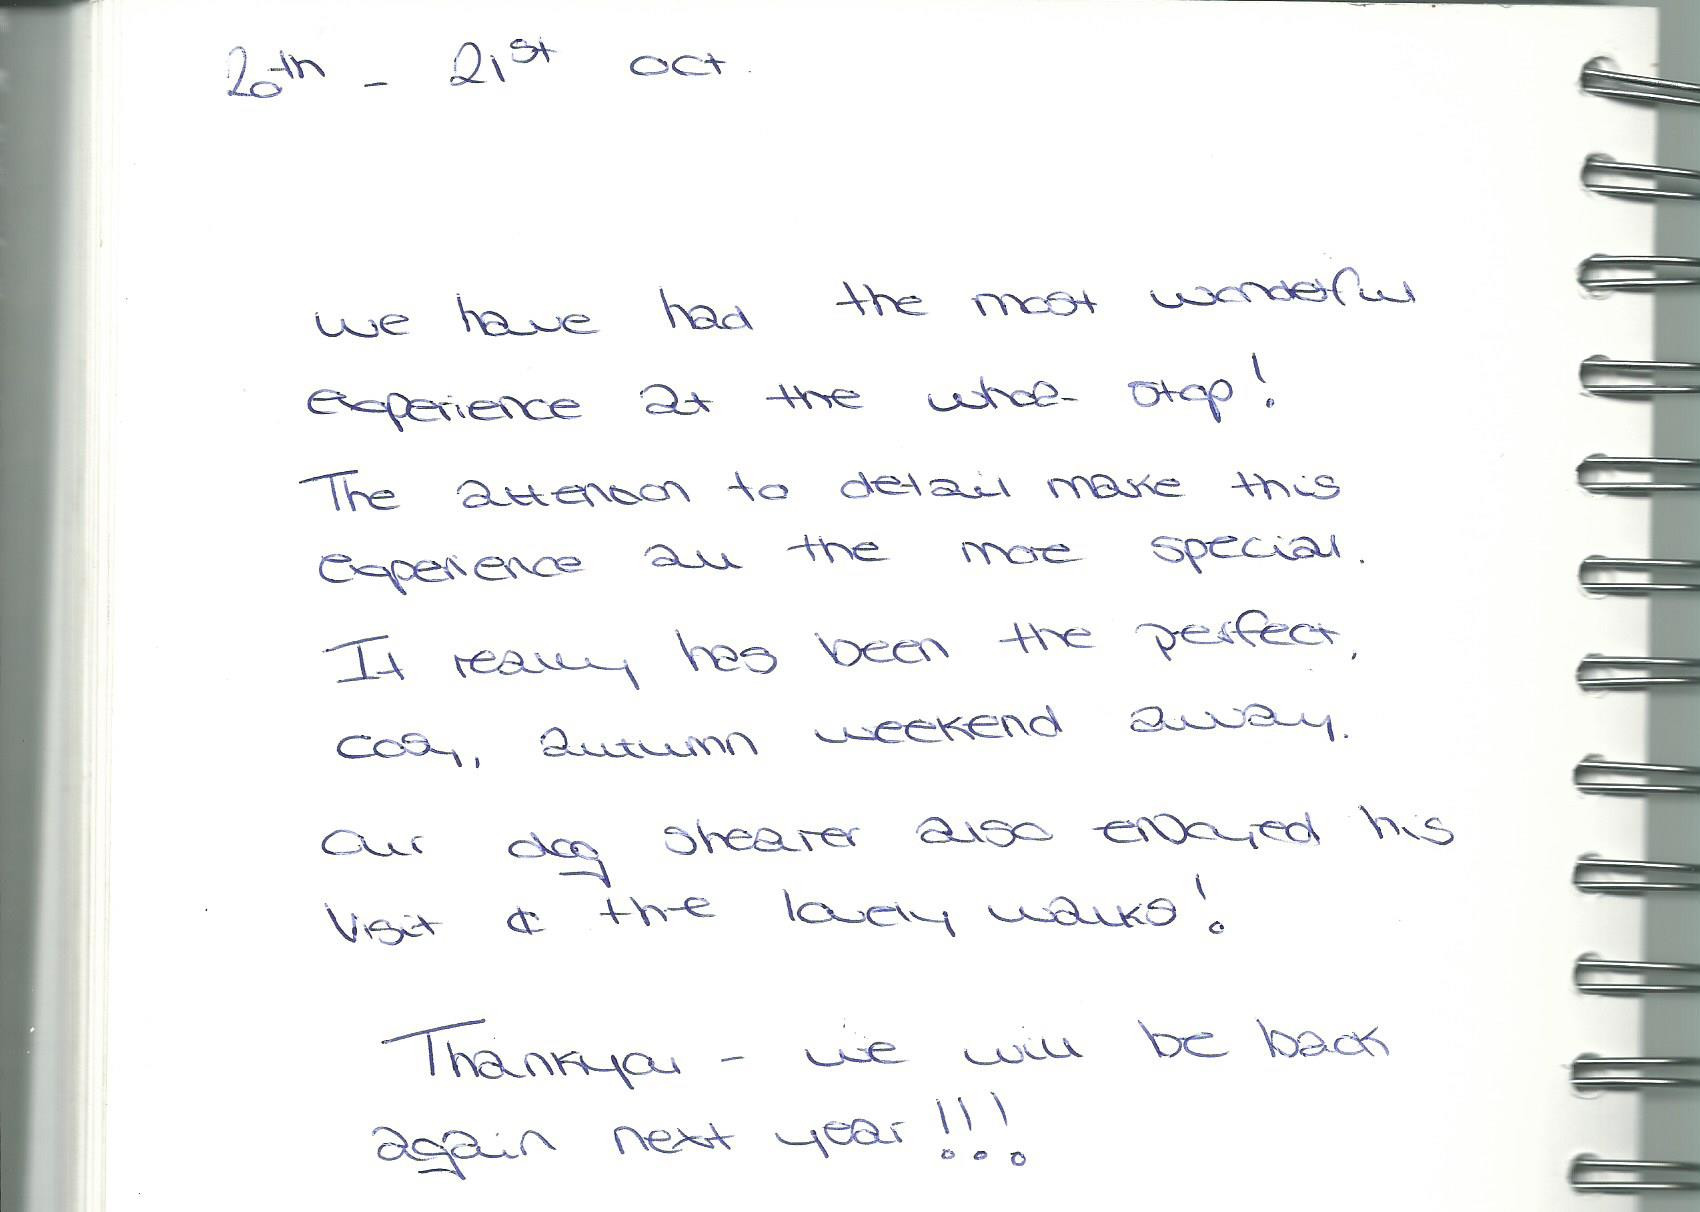 20th - 21st oct
we have had the most wonderful
experience at the stop!
The attention to detail make this
experience all the more special.
It really has been the perfect,
cosy, autumn weekend away.
Our dog shearer also enjoyed his
visit & the lovely walks!
Thankyou - we will be back
again next year!!!